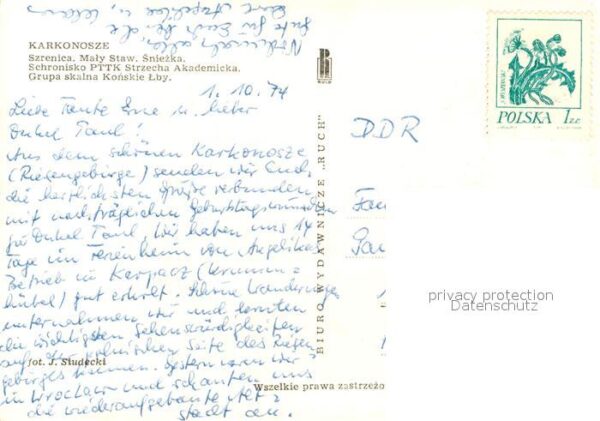 KARKONOSZE
Szrenica, Mały Staw, Śnieżka,
Schronisko PTTK Strzecha Akademicka,
Grupa skalna Końskie Łby.
1.10.74
Liebe Tante Erne u. lieber
Onkel Paul!
Aus dem schönen Karkonosze
(Riesengebirge) senden wir Euch
die herzlichsten Grüße verbunden
mit nachträglichen Geburtstagswünschen
für Onkel Paul. Wir haben uns 14
Tage im Ferienheim von Angelikas
Betrieb in Karpacz (Krumm=
hübel) gut erholt. Schöne Wanderungen
unternahmen wir und lernten
die wichtigsten Sehenswürdigkeiten
auf der polnischen Seite des Riesen=
gebirges kennen. Gestern waren wir
in Wrocław und schauten uns
die wiederaufgebaute Alt=
stadt an.
Nochmals alles
Gute für Euch
Angelika u.
fot. J. Siudecki
BIURO WYDAWNICZE „RUCH"
Wszelkie prawa zastrzeżo
DDR
Fa
POLSKA 1 ZŁ
privacy protection
Datenschutz